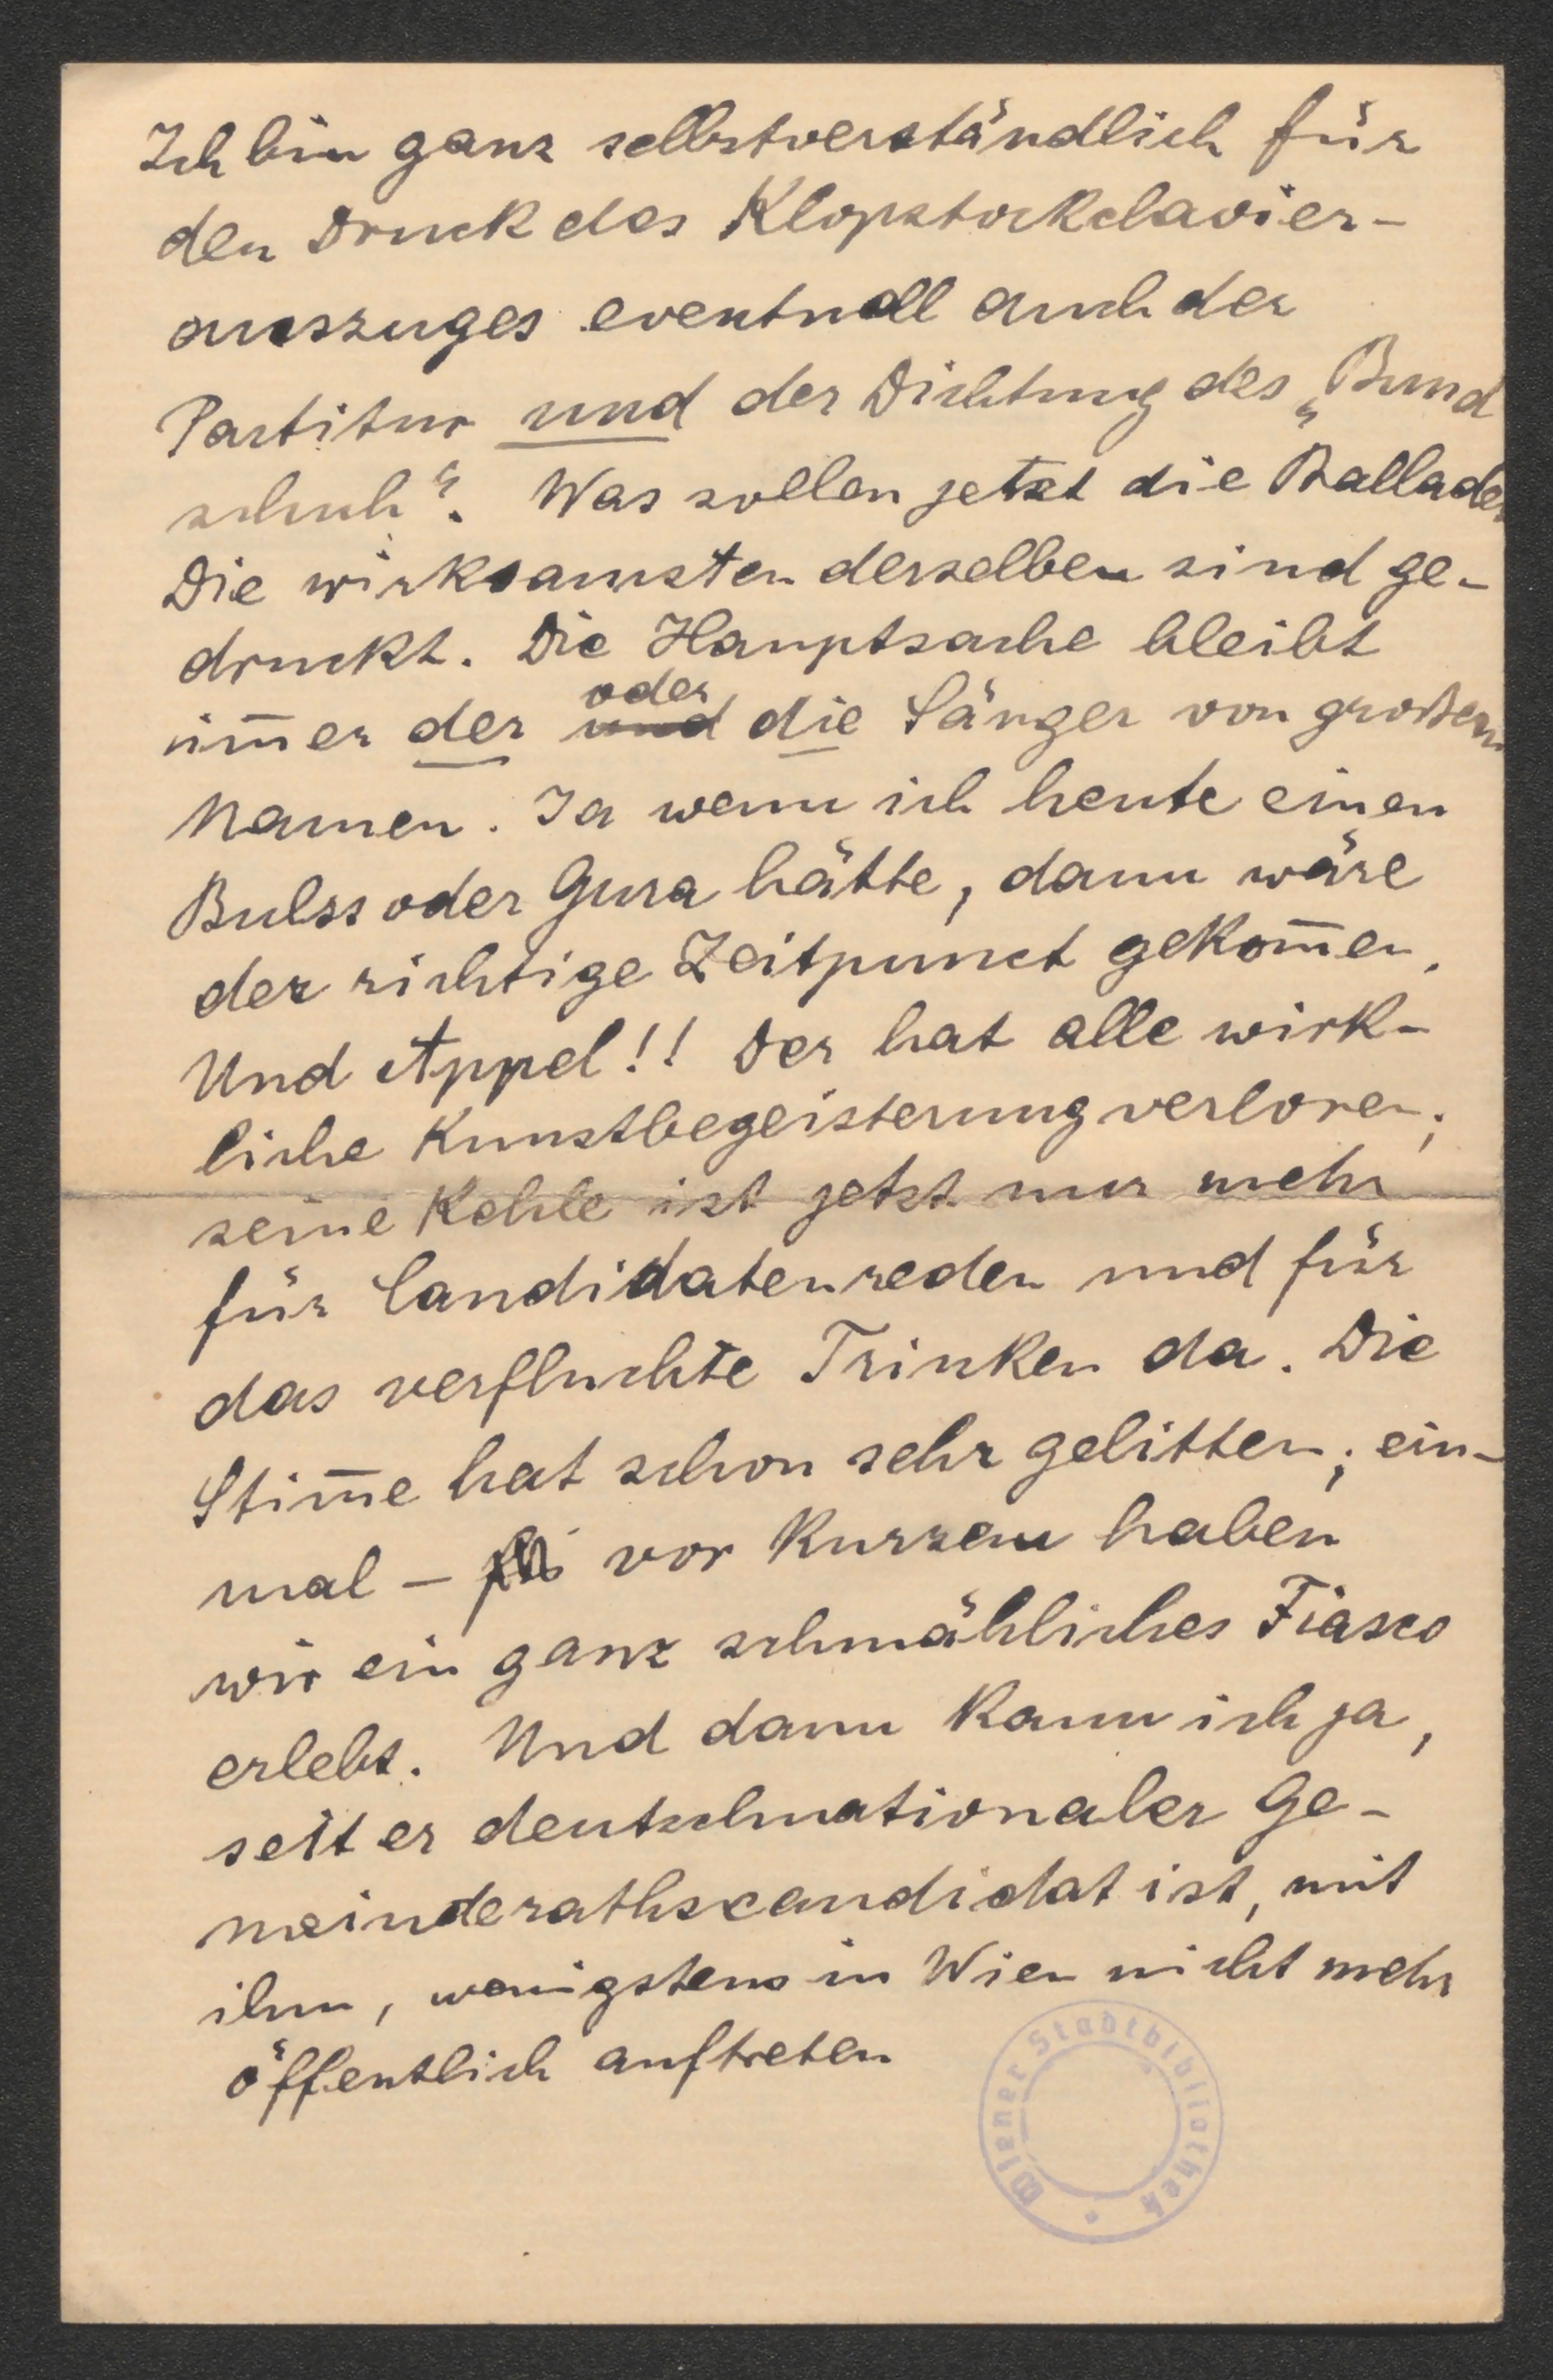 Ich bin ganz selbstverständlich für
den Druck des Klopstockclavier-
auszuges eventuell auch der
Partitur und der Dichtung des „Bund
schuh“. Was sollen jetzt die Balladen
Die wirksamsten derselben sind ge-
druckt. Die Hauptsache bleibt
oder
im̅er der und die Sänger von großem
Namen. Ja wenn ich heute einen
Bulss oder Gura hätte, dann wäre
der richtige Zeitpunct gekom̅en.
Und Appel!! Der hat alle wirk-
liche Kunstbegeisterung verloren;
seine Kehle ist jetzt nur mehr
für Candidatenreden und für
das verfluchte Trinken da. Die
Stim̅e hat schon sehr gelitten; ein-
mal – vor Kurzem haben
wir ein ganz schmähliches Fiasco
erlebt. Und dann kann ich ja,
seit er deutschnationaler Ge-
meinderathscandidat ist, mit
ihm, wenigstens in Wien nicht mehr
öffentlich auftreten
Wiener Stadtbibliothek